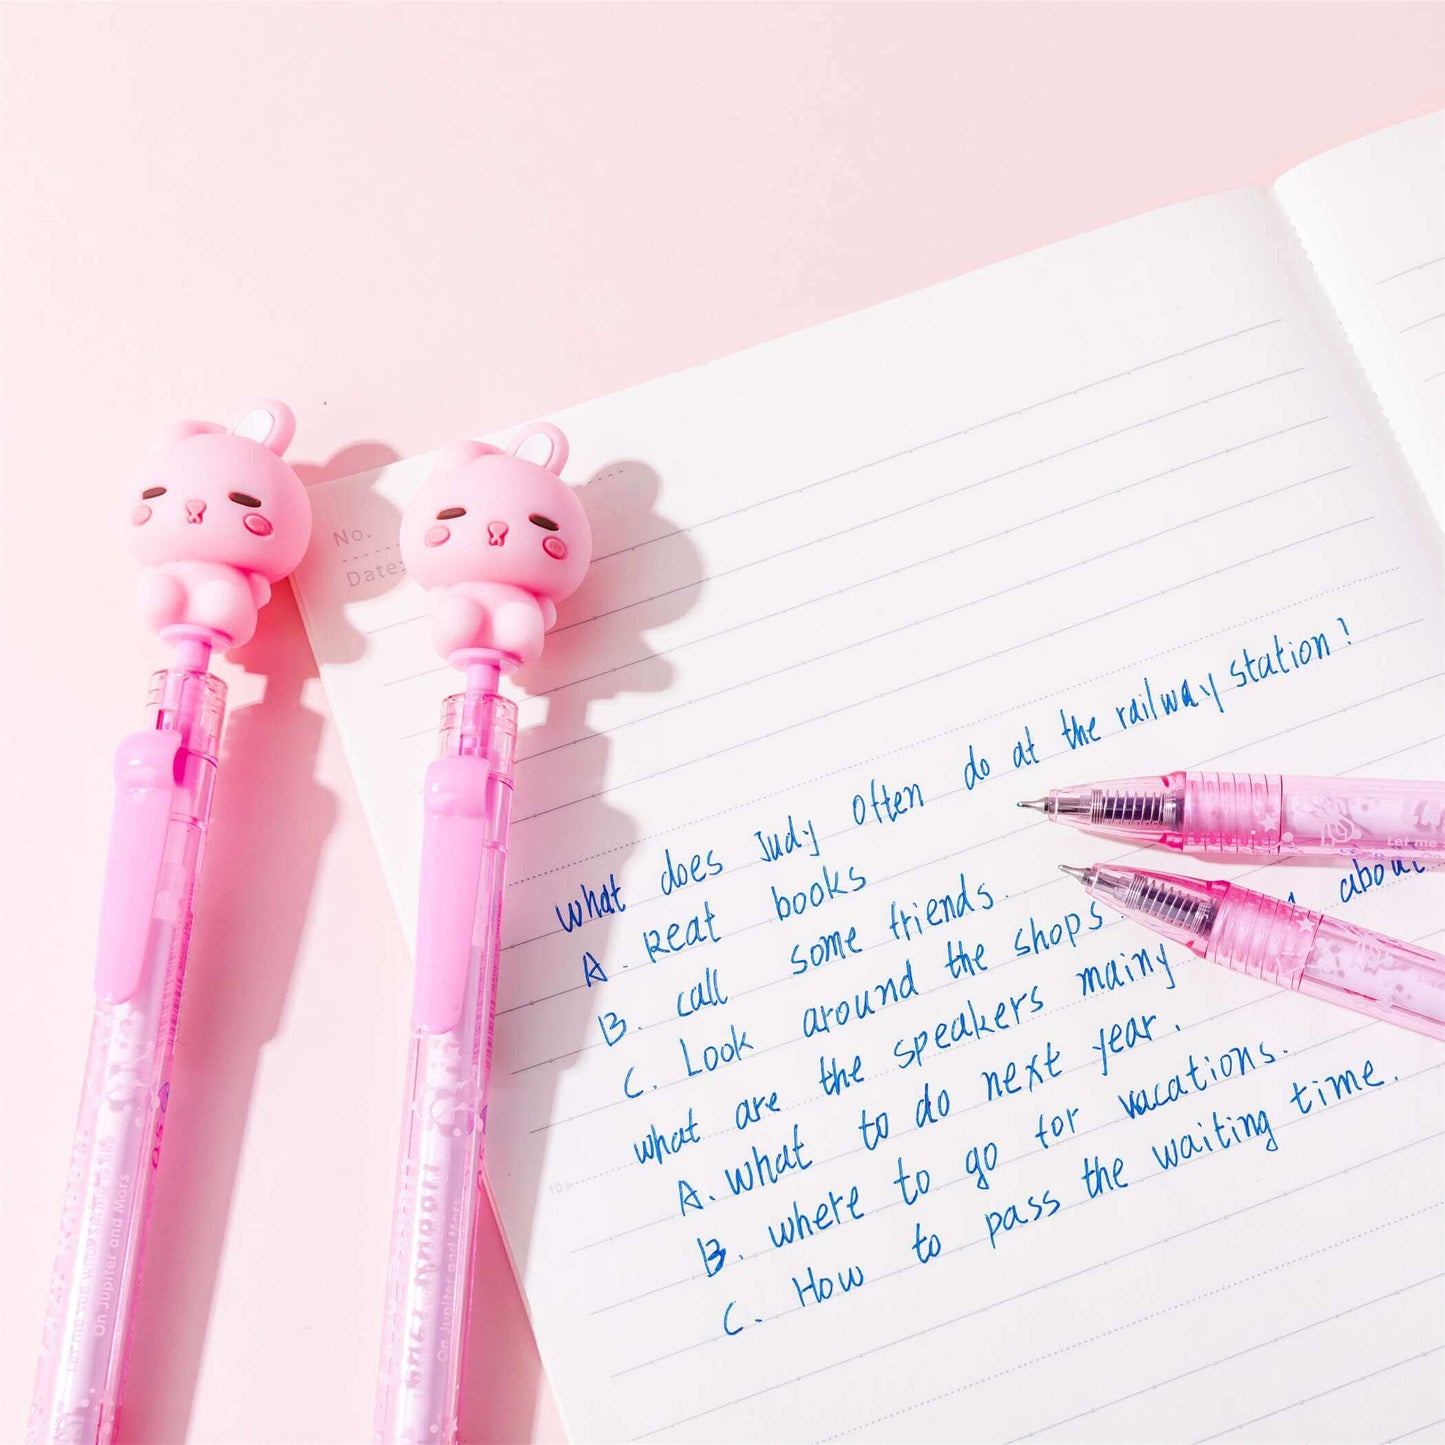 No.
Date:
what does Judy often do at the railway station?
A. Reat books
B. call some friends.
C. Look around the shops.
what are the speakers mainy about
A. what to do next year.
B. where to go for vacations.
C. How to pass the waiting time.
10
Let me see what spring is like
On Jupiter and Mars
On Jupiter and Mars
Let me